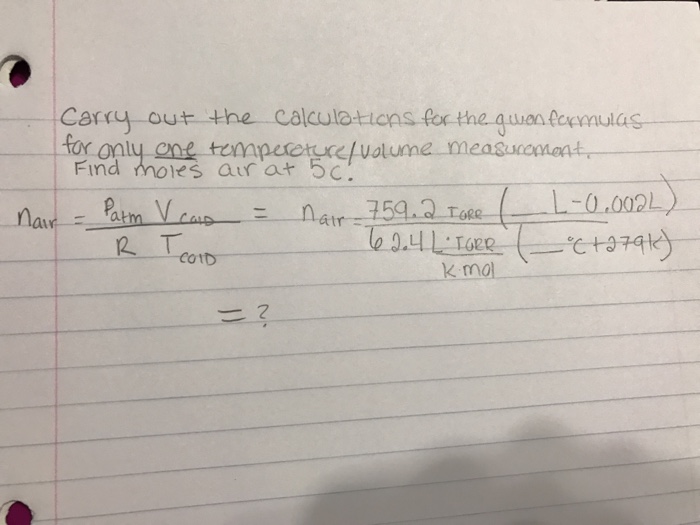 Carry out the calculations for the given formulas
for only one temperature/volume measurement.
Find moles air at 5c.
nair = Patm Vcold / R Tcold = nair = 759.2 TORR (__ L-0.002L) / 62.4 L·TORR / K·mol (__ °C+279K)
= ?